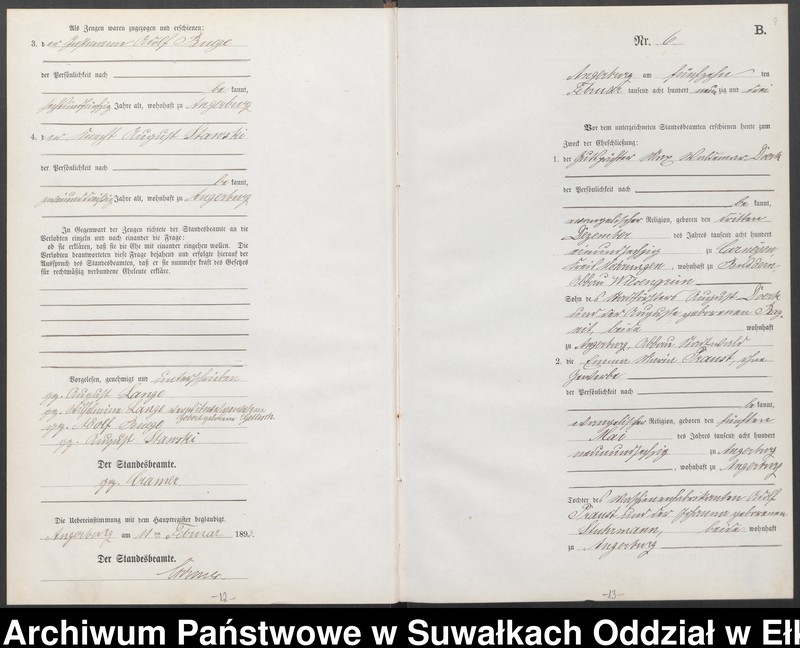 Als Zeugen waren zugezogen und erschienen:
3. der Adolf
der Persönlichkeit nach
be kannt,
Jahre alt, wohnhaft zu Angerburg
4. der August Stawski
der Persönlichkeit nach
be kannt,
Jahre alt, wohnhaft zu Angerburg
In Gegenwart der Zeugen richtete der Standesbeamte an die
Verlobten einzeln und nach einander die Frage:
ob sie erklären, daß sie die Ehe mit einander eingehen wollen. Die
Verlobten beantworteten diese Frage bejahend und erfolgte hierauf der
Ausspruch des Standesbeamten, daß er sie nunmehr kraft des Gesetzes
für rechtmäßig verbundene Eheleute erkläre.
Vorgelesen, genehmigt und unterschrieben
gz. August Lange
gz. Wilhelmine Lange
gz. Adolf
gz. August Stawski
Der Standesbeamte.
gz. Kramer
Die Uebereinstimmung mit dem Hauptregister beglaubigt.
Angerburg am 11ten Februar 189
Der Standesbeamte.
-12-
B.
Nr. 6
Angerburg am fünfzehn ten
Februar tausend acht hundert neun zig und drei
Vor dem unterzeichneten Standesbeamten erschienen heute zum
Zweck der Eheschließung:
1. der Gutspächter Max Waldemar Doerk
der Persönlichkeit nach
be kannt,
evangelischer Religion, geboren den dritten
Dezember des Jahres tausend acht hundert
einundsechzig zu
Kreis Mohrungen, wohnhaft zu
Abbau
Sohn des August Doerk
und der Auguste geborenen
beide wohnhaft
zu Angerburg, Abbau
2. die Emma Maria Praust, ohne
Gewerbe
der Persönlichkeit nach
be kannt,
evangelischer Religion, geboren den fünften
Mai des Jahres tausend acht hundert
neunundsechzig zu Angerburg
, wohnhaft zu Angerburg
Tochter des Maschinenfabrikanten Adolf
Praust und der Johanna geborenen
Stuhrmann, beide wohnhaft
zu Angerburg
-13-
Archiwum Państwowe w Suwałkach Oddział w Ełk